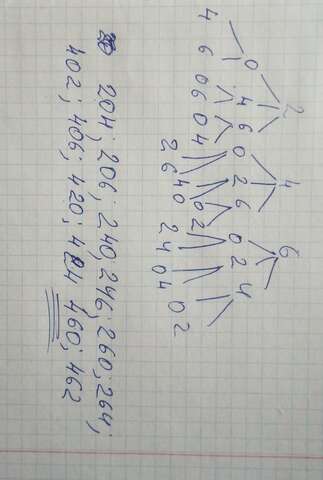 2 4 6
0 4 6 0 2 6 0 2 4
4 6 0 6 0 4 2 6 4 0 0 2 2 4 0 4 0 2
204; 206; 240, 246; 260; 264;
402; 406; 420; 460; 462